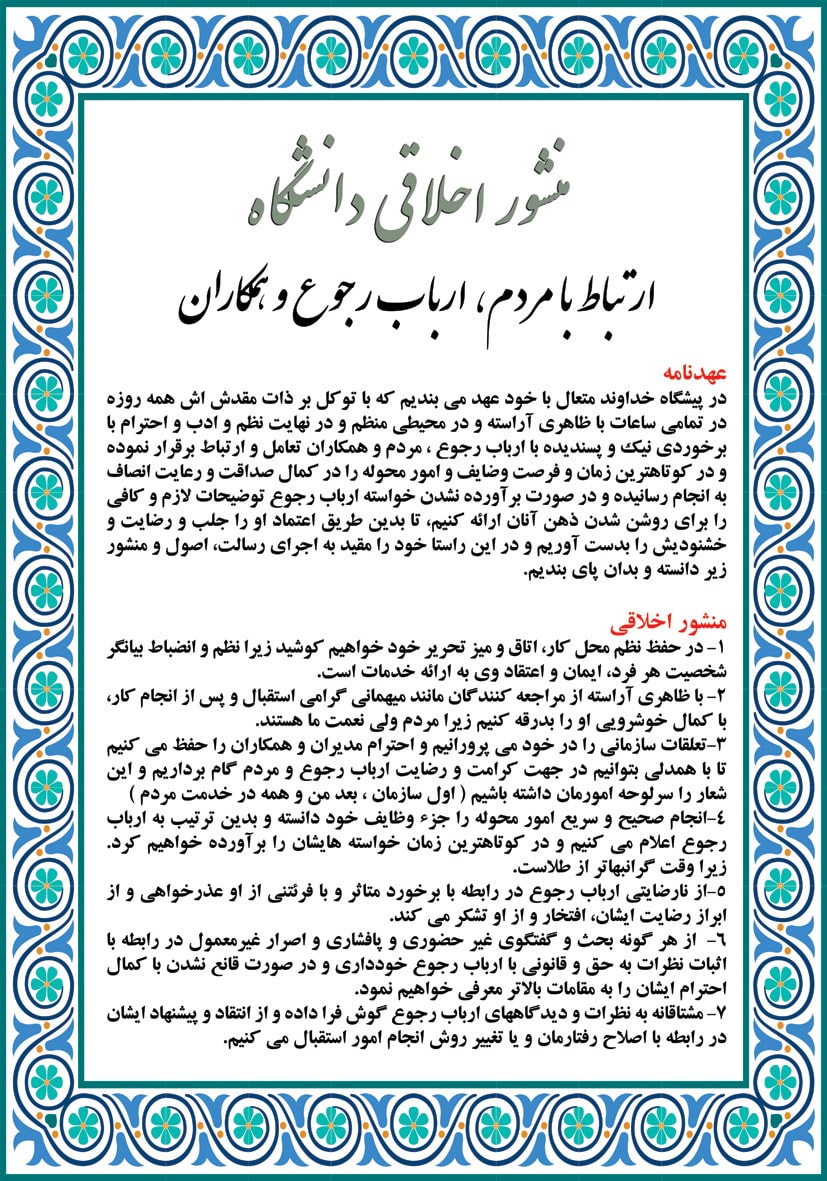 منشور اخلاقی دانشگاه
ارتباط با مردم، ارباب رجوع و همکاران
عهدنامه
در پیشگاه خداوند متعال با خود عهد می بندیم که با توکل بر ذات مقدش اش همه روزه
در تمامی ساعات با ظاهری آراسته و در محیطی منظم و در نهایت نظم و ادب و احترام با
برخوردی نیک و پسندیده با ارباب رجوع ، مردم و همکاران تعامل و ارتباط برقرار نموده
و در کوتاهترین زمان و فرصت وضایف و امور محوله را در کمال صداقت و رعایت انصاف
به انجام رسانیده و در صورت برآورده نشدن خواسته ارباب رجوع توضیحات لازم و کافی
را برای روشن شدن ذهن آنان ارائه کنیم، تا بدین طریق اعتماد او را جلب و رضایت و
خشنودیش را بدست آوریم و در این راستا خود را مقید به اجرای رسالت، اصول و منشور
زیر دانسته و بدان پای بندیم.
منشور اخلاقی
۱- در حفظ نظم محل کار، اتاق و میز تحریر خود خواهیم کوشید زیرا نظم و انضباط بیانگر
شخصیت هر فرد، ایمان و اعتقاد وی به ارائه خدمات است.
۲- با ظاهری آراسته از مراجعه کنندگان مانند میهمانی گرامی استقبال و پس از انجام کار،
با کمال خوشرویی او را بدرقه کنیم زیرا مردم ولی نعمت ما هستند.
۳-تعلقات سازمانی را در خود می پرورانیم و احترام مدیران و همکاران را حفظ می کنیم
تا با همدلی بتوانیم در جهت کرامت و رضایت ارباب رجوع و مردم گام برداریم و این
شعار را سرلوحه امورمان داشته باشیم ( اول سازمان ، بعد من و همه در خدمت مردم )
٤-انجام صحیح و سریع امور محوله را جزء وظایف خود دانسته و بدین ترتیب به ارباب
رجوع اعلام می کنیم و در کوتاهترین زمان خواسته هایشان را برآورده خواهیم کرد.
زیرا وقت گرانبهاتر از طلاست.
٥-از نارضایتی ارباب رجوع در رابطه با برخورد متاثر و با فرئتنی از او عذرخواهی و از
ابراز رضایت ایشان، افتخار و از او تشکر می کند.
٦- از هر گونه بحث و گفتگوی غیر حضوری و پافشاری و اصرار غیرمعمول در رابطه با
اثبات نظرات به حق و قانونی با ارباب رجوع خودداری و در صورت قانع نشدن با کمال
احترام ایشان را به مقامات بالاتر معرفی خواهیم نمود.
۷- مشتاقانه به نظرات و دیدگاههای ارباب رجوع گوش فرا داده و از انتقاد و پیشنهاد ایشان
در رابطه با اصلاح رفتارمان و یا تغییر روش انجام امور استقبال می کنیم.